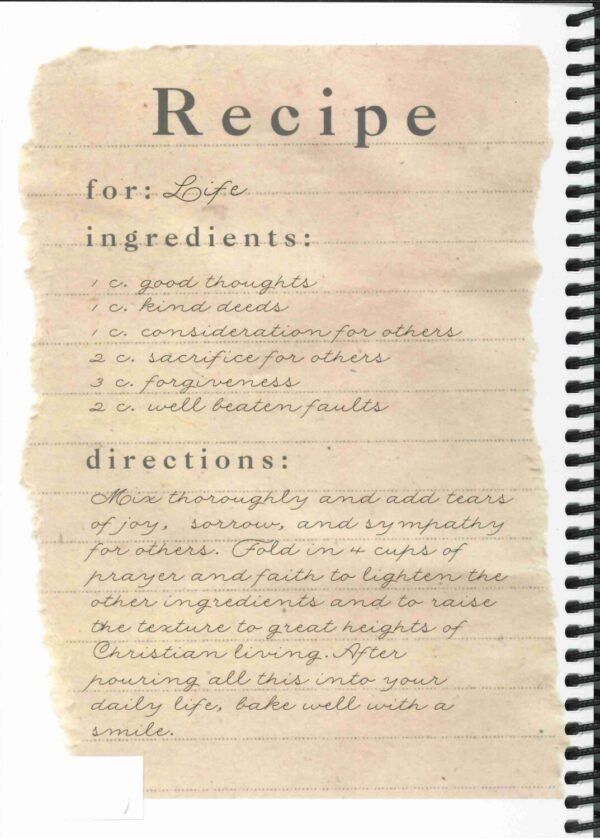 Recipe
for: Life
ingredients:
1 c. good thoughts
1 c. kind deeds
1 c. consideration for others
2 c. sacrifice for others
3 c. forgiveness
2 c. well beaten faults
directions:
Mix thoroughly and add tears
of joy, sorrow, and sympathy
for others. Fold in 4 cups of
prayer and faith to lighten the
other ingredients and to raise
the texture to great heights of
Christian living. After
pouring all this into your
daily life, bake well with a
smile.